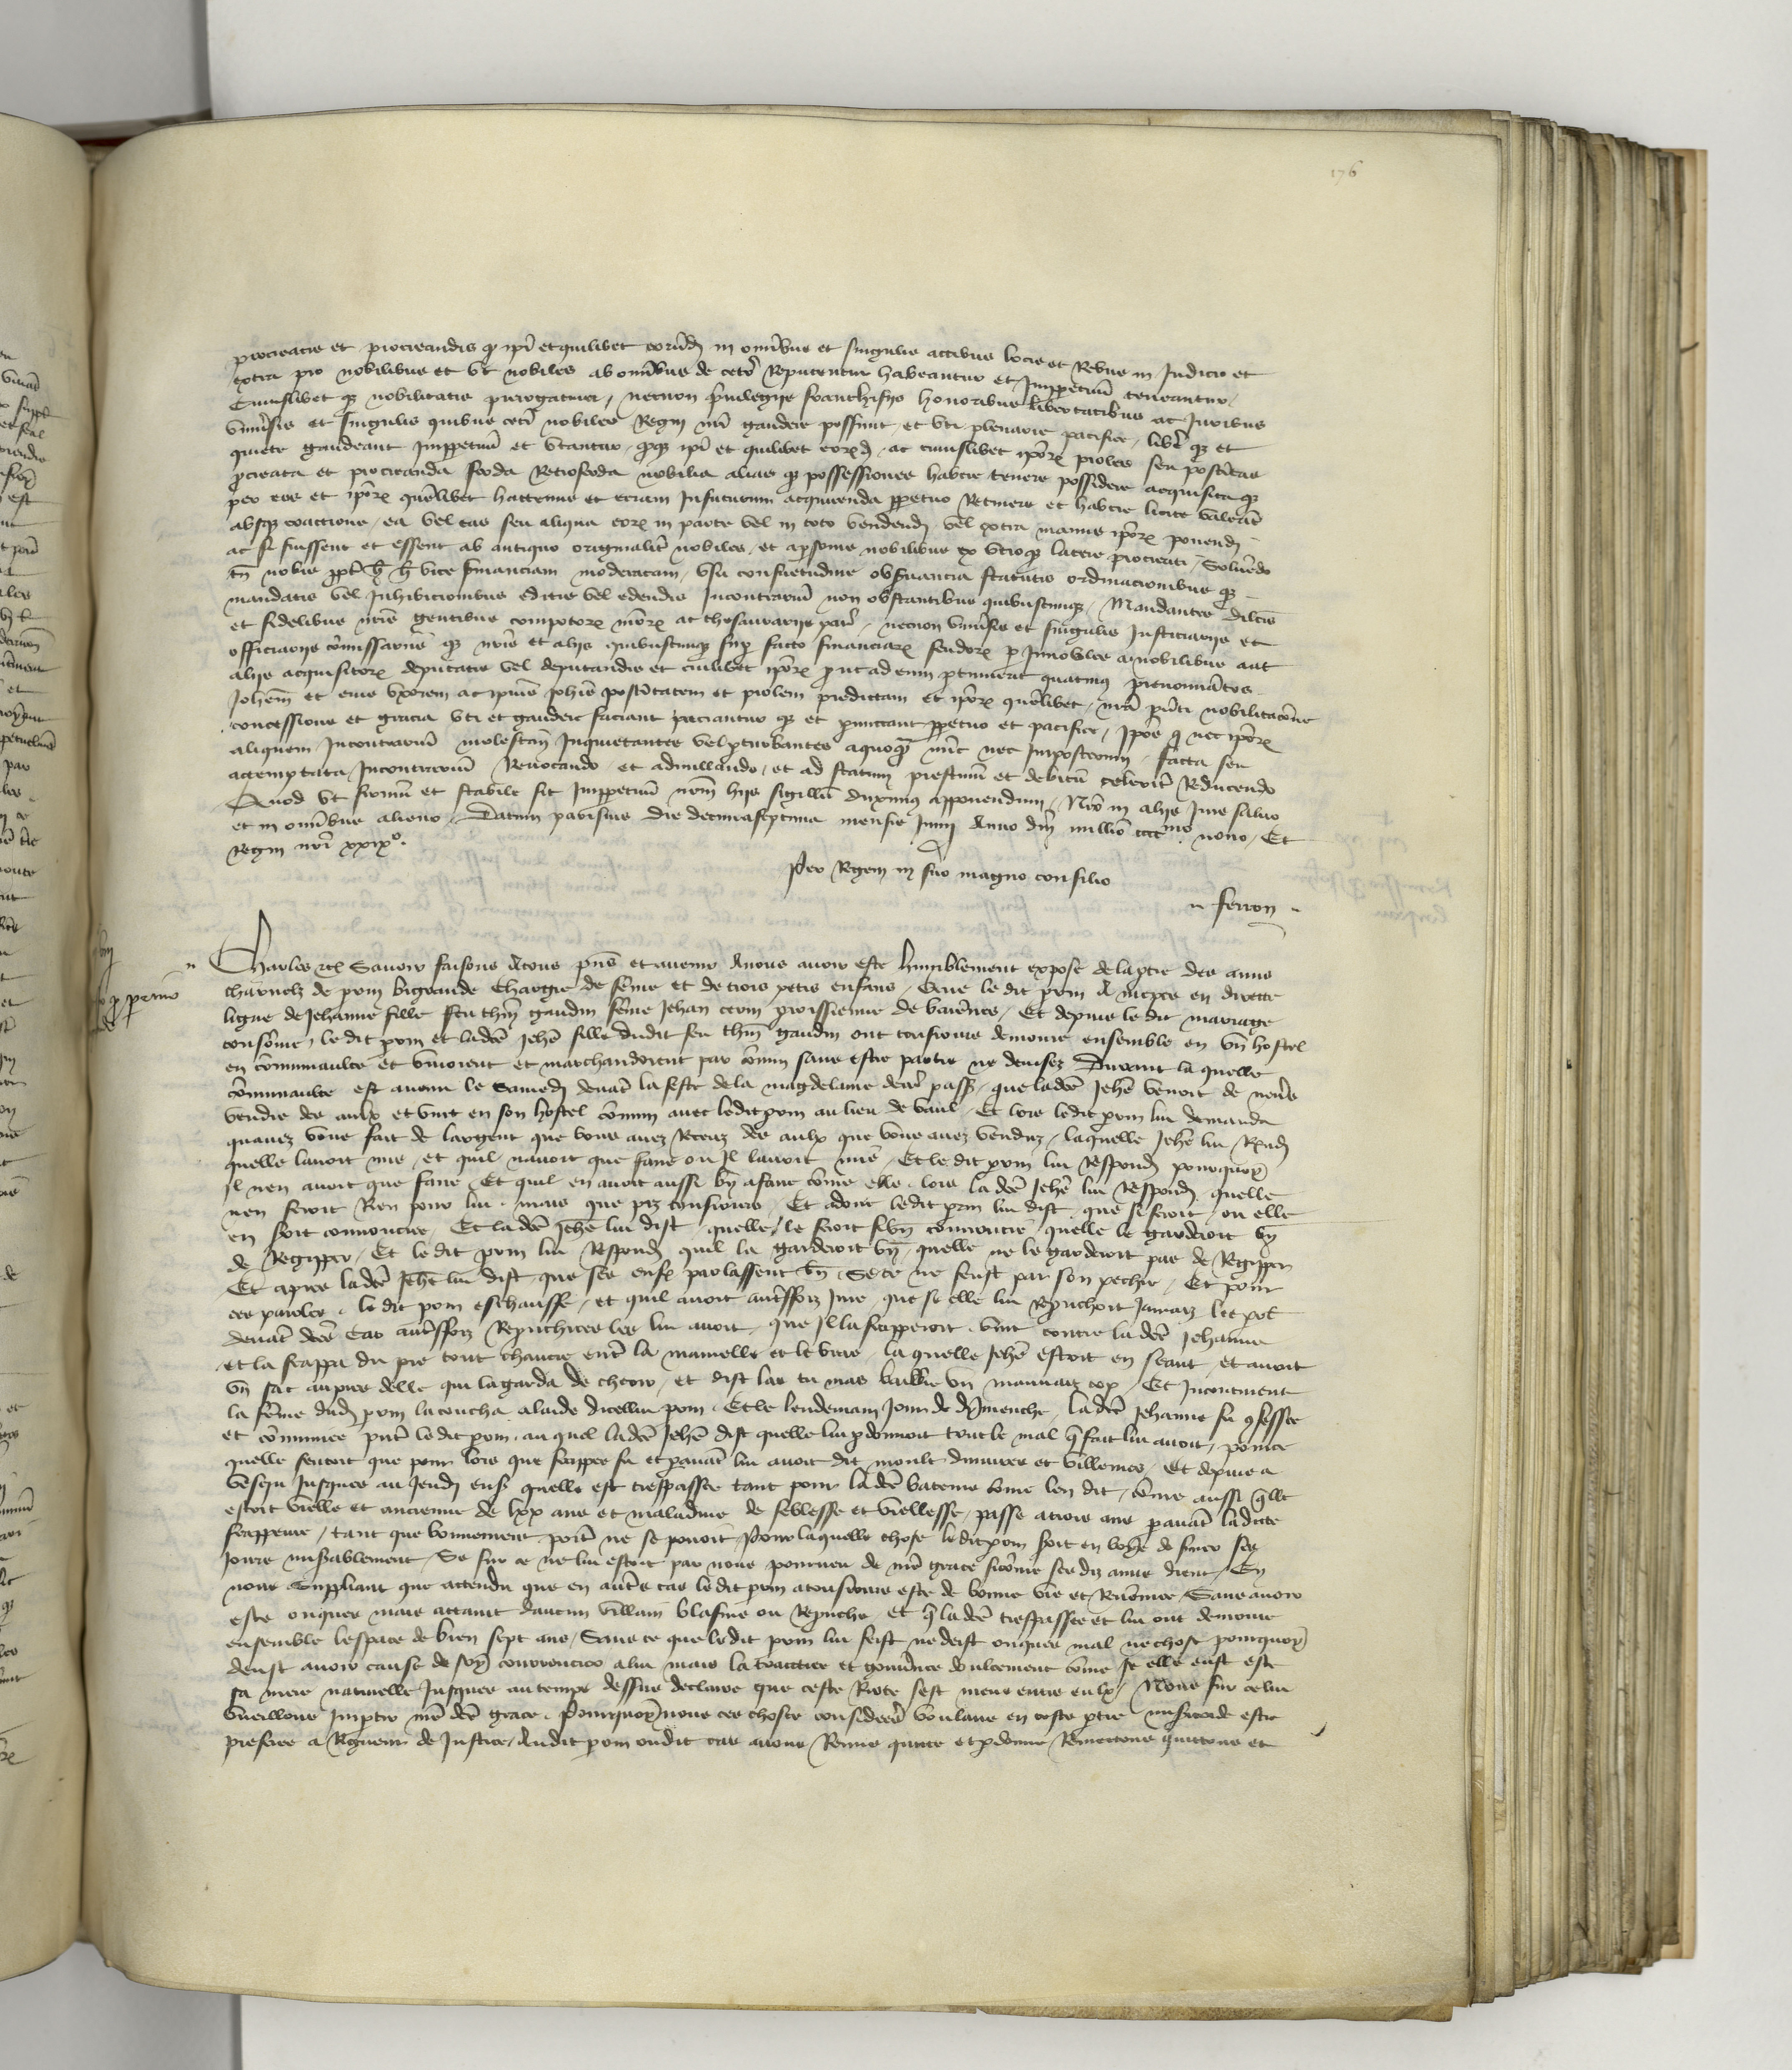 176
procreatis et procreandis q ipi et quilibet eorūdē in omībus et singulis actibus locis et Rebus in Judicio et
extra pro nobilibus et vt nobiles ab omībus de cetō Reputentur habeantur et Imppetuū teneantur
Cuiuslibet q nobilitatis prerogatiua, necnon priuilegijs franchisijs honoribus libertatibus ac Juribus
vniūsis et singulis quibus ceti nobiles Regni nri gaudere possunt, et vti plenarie pacifice, libē q et
quiete gaudeant Imppetuū et vtantur, qq ipi et quilibet eord, ac cuiuslibet ipor proles seu postitas
pcreata et procreanda feoda Retrofeoda nobilia alias q possessiones habere tenere possidere acquisita q
per eos et ipor quēlibet hactenus et eciam Infuturum acquirenda ppetuo Retinere et habere licite valeāt
absq coactione, ea vel eas seu aliqua eor in parte vel in toto vendendi vel extra manus ipor ponendi
ac si fuissent et essent ab antiquo originalit nobiles, et apsonis nobilibus ex vtroq latere procreati, Soluēdo
tn nobis ppt h hvice financiam moderatam, vsu consuetudine obsuancia statutis ordinacionibus q
mandatis vel Inhibicionibus editis vel edendis Incontrariū non obstantibus quibuscumq, Mandantes dilcis
et fidelibus nris gentibus compotor nror ac thesaurarijs paris, necnon vniūsis et singulis Justiciarijs et
officiarijs cōmissarijs q nris et alijs quibuscumq sup facto financiar feudor p Innobiles a nobilibus aut
alijs acquisitor deputatis vel deputandis et cuilibet ipor put ad eum ptinuerit quatinus prenominatos
Johēm et eius vxorem ac ipius Johis postitatem et prolem predictam et ipor quēlibet, nra pnti nobilitacōne
concessione et gracia vti et gaudere faciant paciantur q et pmittant ppetuo et pacifice, Ipos q nec ipor
aliquem Incontrariū molestan Inquietantes vel pturbantes aquoq nūc nec Inposterum, facta seu
attemptata Incontrariū Reuocando, et adnullando, et ad statum pristinū et debitū celerit Reducendo
Quod vt firmū et stabile sit Imppetuū nrm hijs sigillū duximus apponendum, Nro in alijs Jure saluo
et in omībus alieno, Datum parisius die decimaseptima mensis Junij Anno dni millio cccc mo nono, Et
Regni nri xxixo.
Per Regem in suo magno consilio
ferron
Charles etc Sauoir faisons Atous pns et auenir Anous auoir este humblement expose de la ptie des amis
charnelz de pom bigrande chargie de fēme et de trois petis enfans, Que le dit pom A niepce en directe
ligne de Jehanne fille feu thm gaudin fēme Jehan teon parrossienne de varēnes, Et depuis le dit mariage
consōme, le dit pom et ladce Jehe fille dudit feu thm gaudin ont tousiours demoure ensemble en vn hostel
en cōmunaulte et viuoient et marchandoient par cōmun sans estre partis ne diuisez Durant la quelle
cōmunaulte est auenu le Samedi deuāt la feste de la magdelaine derr passe, que ladce Jehe venoit de neuēs
vendre des aulx et vint en son hostel cōmun auec ledit pom au lieu de vaul, Et lors ledit pom lui demanda
quauez vous fait de largent que vous auez Receuz des aulx que vous auez venduz, laquelle Jehe lui Respodi
quelle lauoit mis, et quil nauoit que faire ou Jl lauoit mis, Et le dit pom lui Respondi pourquoy
Jl nen auoit que faire, Et quil en auoit aussi bn afaire cōme elle, lors ladce Jehe lui Respondi quelle
nen feroit Rien pour lui, mais que piz tousiours, Et adonc ledit pom lui dist que si feroit, ou elle
en seroit courroucee, Et ladce Jehe lui dist, quelle le feroit si bn courroucie, quelle le garderoit bn
de Regipper, Et le dit pom lui Respondi quil la garderoit bn, quelle ne le garderoit pas de Regipper
Et apres ladce Jehe lui dist, que ses enfs parlassent bn, Se ce ne feust par son pechie, Et pour
ces paroles, le dit pom eschauffe, et quil auoit autsfoiz Jure que se elle lui Repuchoit Jamaiz les pot
deuāt dces Car autsfoiz Repuchees les lui auoit, que Jl la frapperoit, vint contre ladce Jehanne
et la frappa du pie tout chaucie entr la mamelle et le bras, laquelle Jehe estoit en seant, et auoit
vn sac aupres delle qui la garda de cheoir, et dist las tu mas baillie vn mauuaiz cop, Et Incontinent
la fēme dudi pom la coucha alaide dicellui pom, Et le lendemain Jour de dymenche, ladce Jehanne fu cfessee
et cōmuniee pnt le dit pom, au quel ladce Jehe dist quelle lui pdonnoit tout le mal q fait lui auoit, pource
quelle sentoit que pour lors que frappee fu et pauāt lui auoit dit moult diniures et villenies, Et depuis a
vescu Jusques au Jeudi ens quelle est trespassee tant pour ladce bateure cōme len dit, cōme aussi qlle
estoit vielle et ancienne de lxx ans et maladiue de feblesse et viellesse, passe atrois ans pauāt ladicte
frappeure, tant que bonnement porter ne se pouoit Pour laquelle chose ledit pom seroit en voye de finer ses
Jours misablement, Se sur ce ne lui estoit par nous pourueu de nre grace sicōme ses diz amis dient, En
nous Suppliant que attendu que en autrs cas le dit pom atousiours este de bonne vie et Renōmee, Sans auoir
este onques mais attaint daucun villain blasme ou Repuche, et q ladce trespassee et lui ont demoure
ensemble lespace de bien sept ans, Sans ce que le dit pom lui feist ne deist onques mal ne chose pourquoy
deust auoir cause de soy courroucier alui mais la traictiee et gouūnee doulcement cōme se elle eust este
sa mere naturelle Jusques au temps dessus declaire que ceste Riote sest meue entre eulx, Nous sur celui
vueillons Impartir nre dce grace, Pourquoy nous ces choses considerees voulans en ceste ptie misicorde estre
preferee a Rigueur de Justice, Audit pom oudit cas auons Remis quitte et pdonne Remettons quittons et